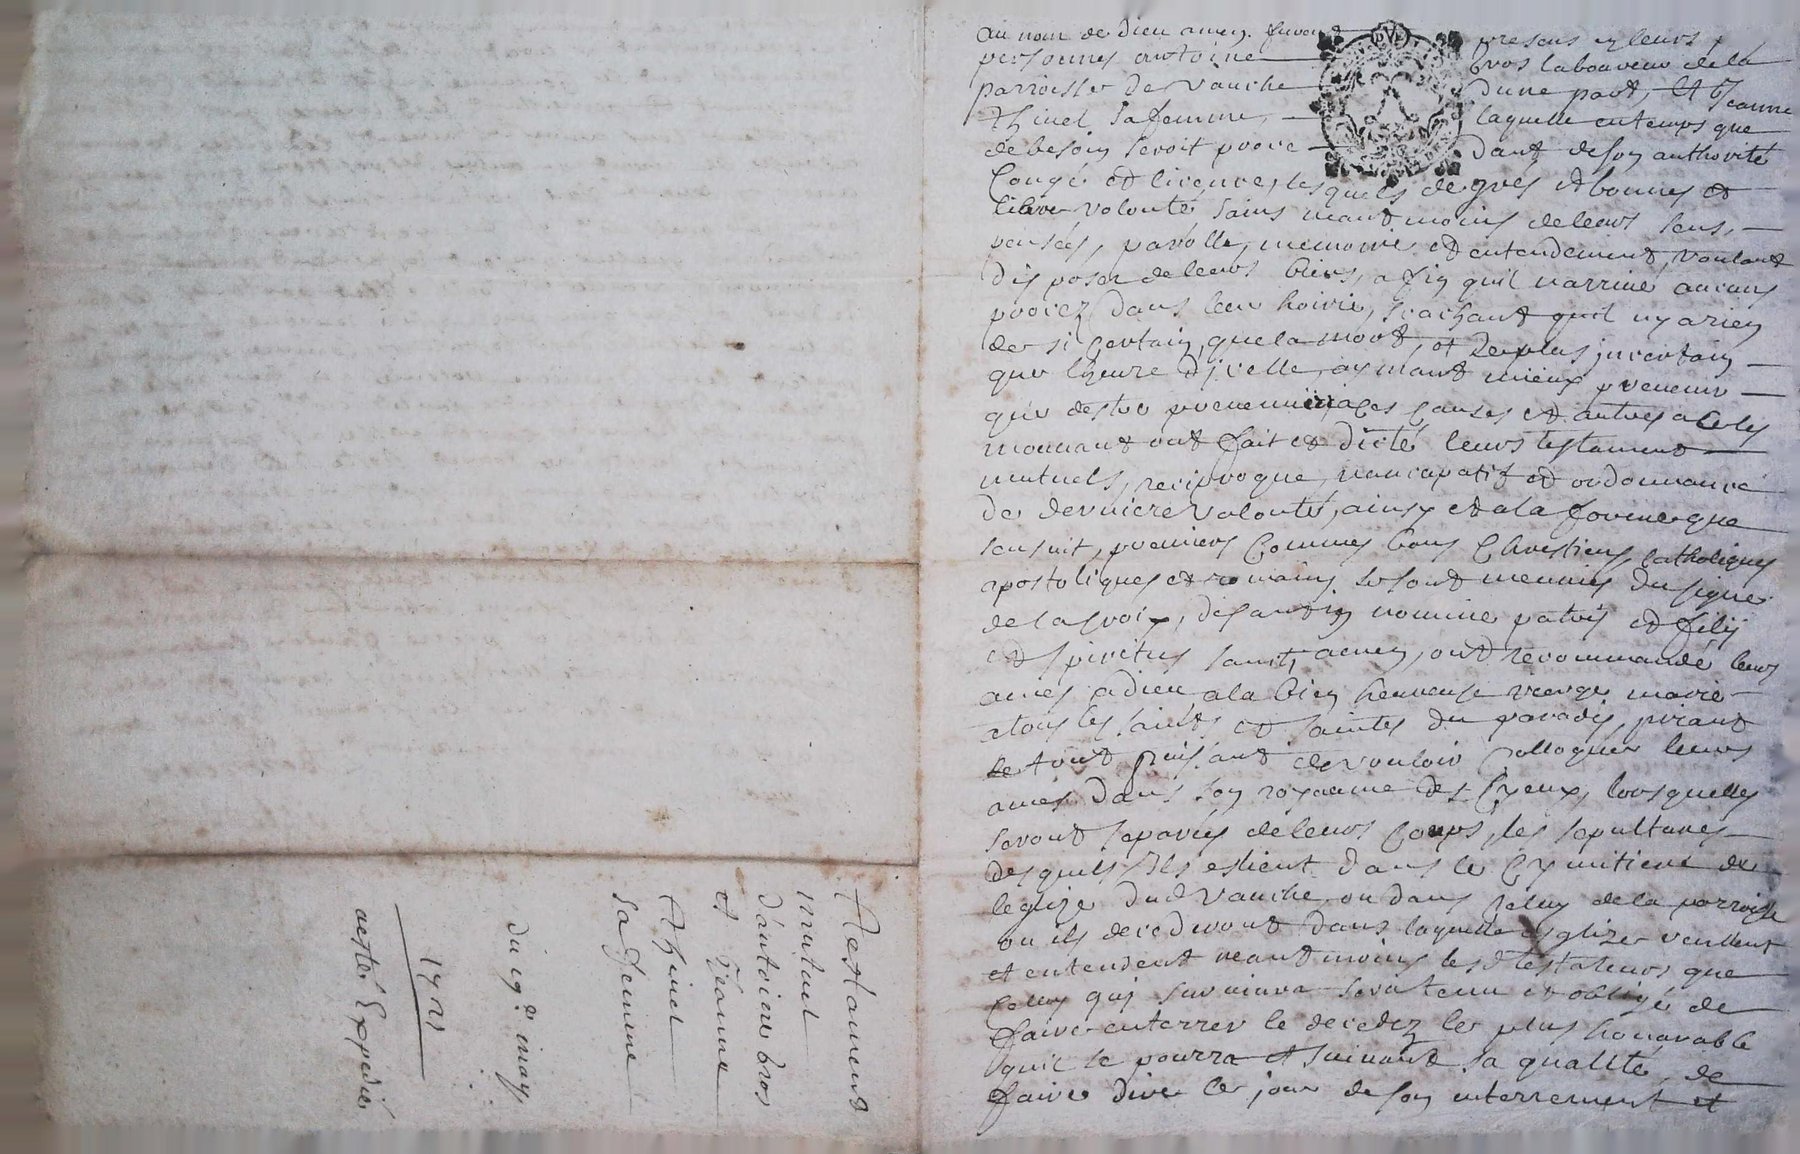 au nom de dieu amen. furent presens en leurs
personnes antoine bros laboureur de la
parroisse de vauche dune part, et Jeanne
thinel sa femme, laquelle en temps que
de besoin seroit proce dant de son authorité
Congé et licence, lesquels de grés et bonnes et
libre volonté sains neantmoins de leurs sens,
pensées, parolle, memoire et entendement, voulant
disposer de leurs biens, a fin quil narrive aucuns
procez dans leur hoirie, scachant quil ny a rien
de si certain, que la mort, et de plus incertain
que lheure dicelle, aymant mieux prevenir
que destre prevenu a ces causes et autres a ce les
mouvant ont fait et dicté leurs testament
mutuels, reciproque, nuncupatif et ordonnance
de derniere volonté, ainsy et a la forme que
sensuit, premiers Commes bons Chrestiens, Catholiques
apostoliques et romains se sont meunis du signe
de la Croix, disant in nomine patris et filij
et spiritus sancti, amen, ont recommandé leurs
ames a dieu a la bien heureuse vierge marie
a tous les saints et saintes du paradis, priant
le tout puissant de vouloir Colloquer leurs
ames dans son royaume des Cyeux, lorsquelles
seront separées de leurs Corps, les sepultures
desquels ils eslient dans le Cymitiere de
leglize dud vauche, ou dans celuy de la parroisse
ou ils decederont dans laquelle esglize veullent
et entendent neantmoins lesd testateurs que
Celluy qui survivra sera tenu et obligé de
faire enterrer le decedez le plus honorable
quil se pourra et suivant sa qualité, de
faire dire le jour de son enterrement et
Testament
mutuel
dantoine bros
et Jeanne
thinel
sa femme
du eqe may
1721
actté Expedié